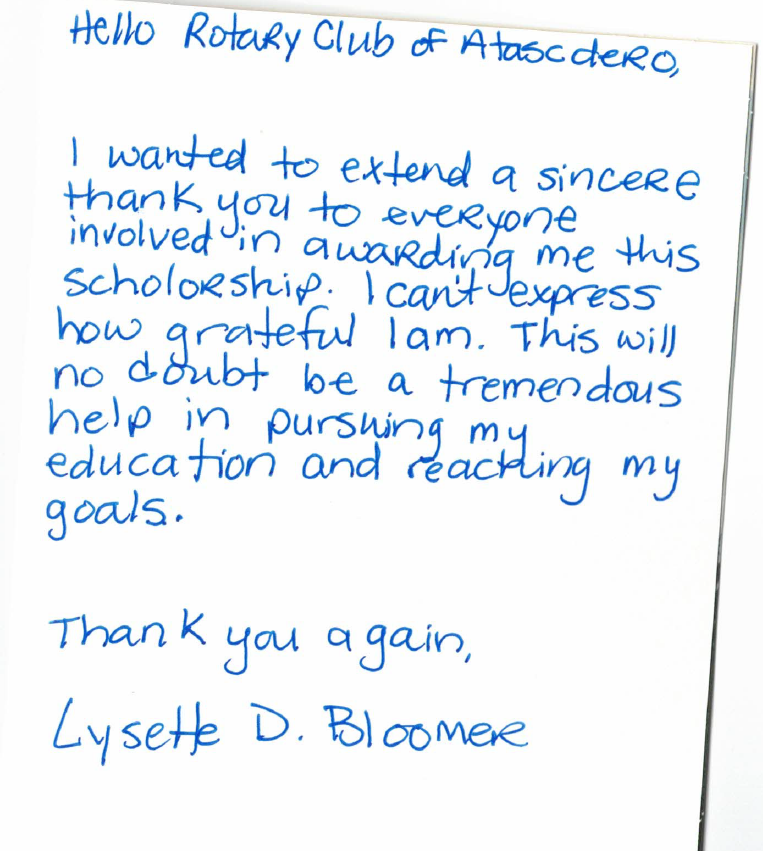 Hello Rotary Club of Atascdero,
I wanted to extend a sincere
thank you to everyone
involved in awarding me this
scholorship. I can't express
how grateful I am. This will
no doubt be a tremendous
help in pursuing my
education and reaching my
goals.
Thank you again,
Lysette D. Bloomer